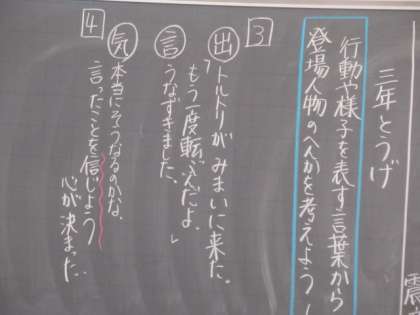 三年とうげ
行動や様子を表す言葉から
登場人物のへんかを考えよう
3
出 トルトリがみまいに来た。
「もう一度転ぶんだよ。」
言 うなずきました。
気 本当にそうなるのかな。
4
言ったことを信じよう
心が決まった。
震